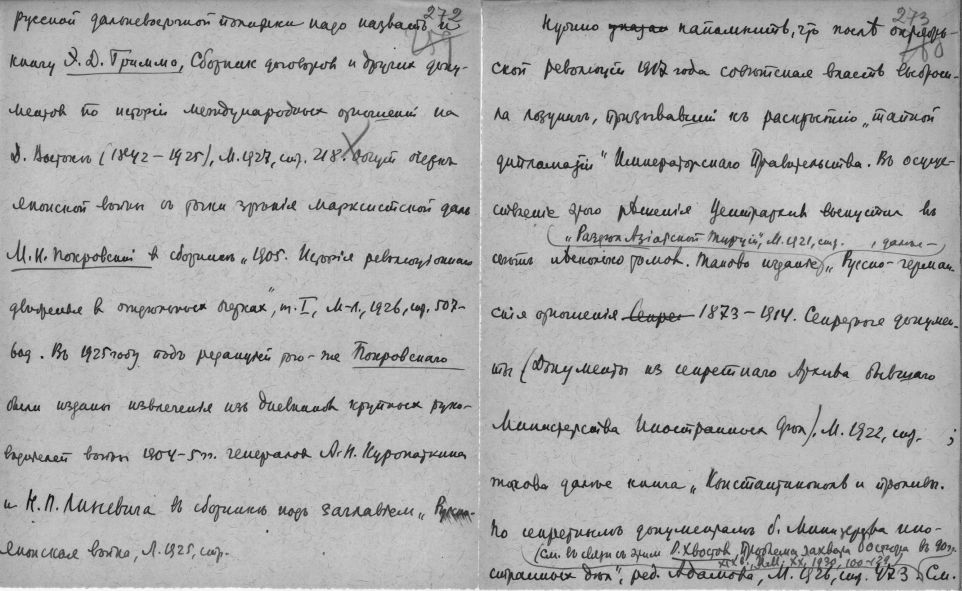 272
русской дальневосточной политики надо назвать и
книгу Э. Д. Гримма, Сборник договоров и других доку-
ментов по исторіи международных отношеній на
Д. Востокѣ (1842 – 1925), М. 1927, стр. 218. очерк
японской войны съ точки зрѣнія марксистской далъ
М. Н. Покровскій в сборникѣ „1905. Исторія революціоннаго
движенія в отдѣльных очерках", т. I, М-Л., 1926, стр. 507-
Въ 1925 году подъ редакціей того-же Покровскаго
были изданы извлеченія изъ дневников крупных руко-
водителей войны 1904-5 гг. генералов А. Н. Куропаткина
и Н. П. Линевича въ сборникѣ подъ заглавіем „Русско-
японская война, Л. 1925, стр.
273
Нужно указан напомнить, что послѣ октябрь-
ской революціи 1917 года совѣтская власть выброси-
ла лозунг, призывавшій къ раскрытію „тайной
дипломатіи" Императорского Правительства. Въ осуще-
ствленіе этого рѣшенія Центрархив выпустил въ
(„Раздѣл Азіатской Турціи", М. 1921, стр. , далѣе –
свѣтъ нѣсколько томов. Таково изданіе) „Русско-герман-
скія отношенія Секрет 1873 – 1914. Секретные докумен-
ты (Документы из секретнаго Архива бывшаго
Министерства Иностранных Дѣл), М. 1922, стр. ;
такова далѣе книга „Константинополь и проливы.
По секретным документам б. Министерства ино-
(См. въ связи с этим В. Хвостов, Проблемы захвата Босфора въ 90 гг.
XIX в., И.М., XX, 1930, 100-129)
странных дѣл", ред. Адамова, М. 1926, стр. 473. См.